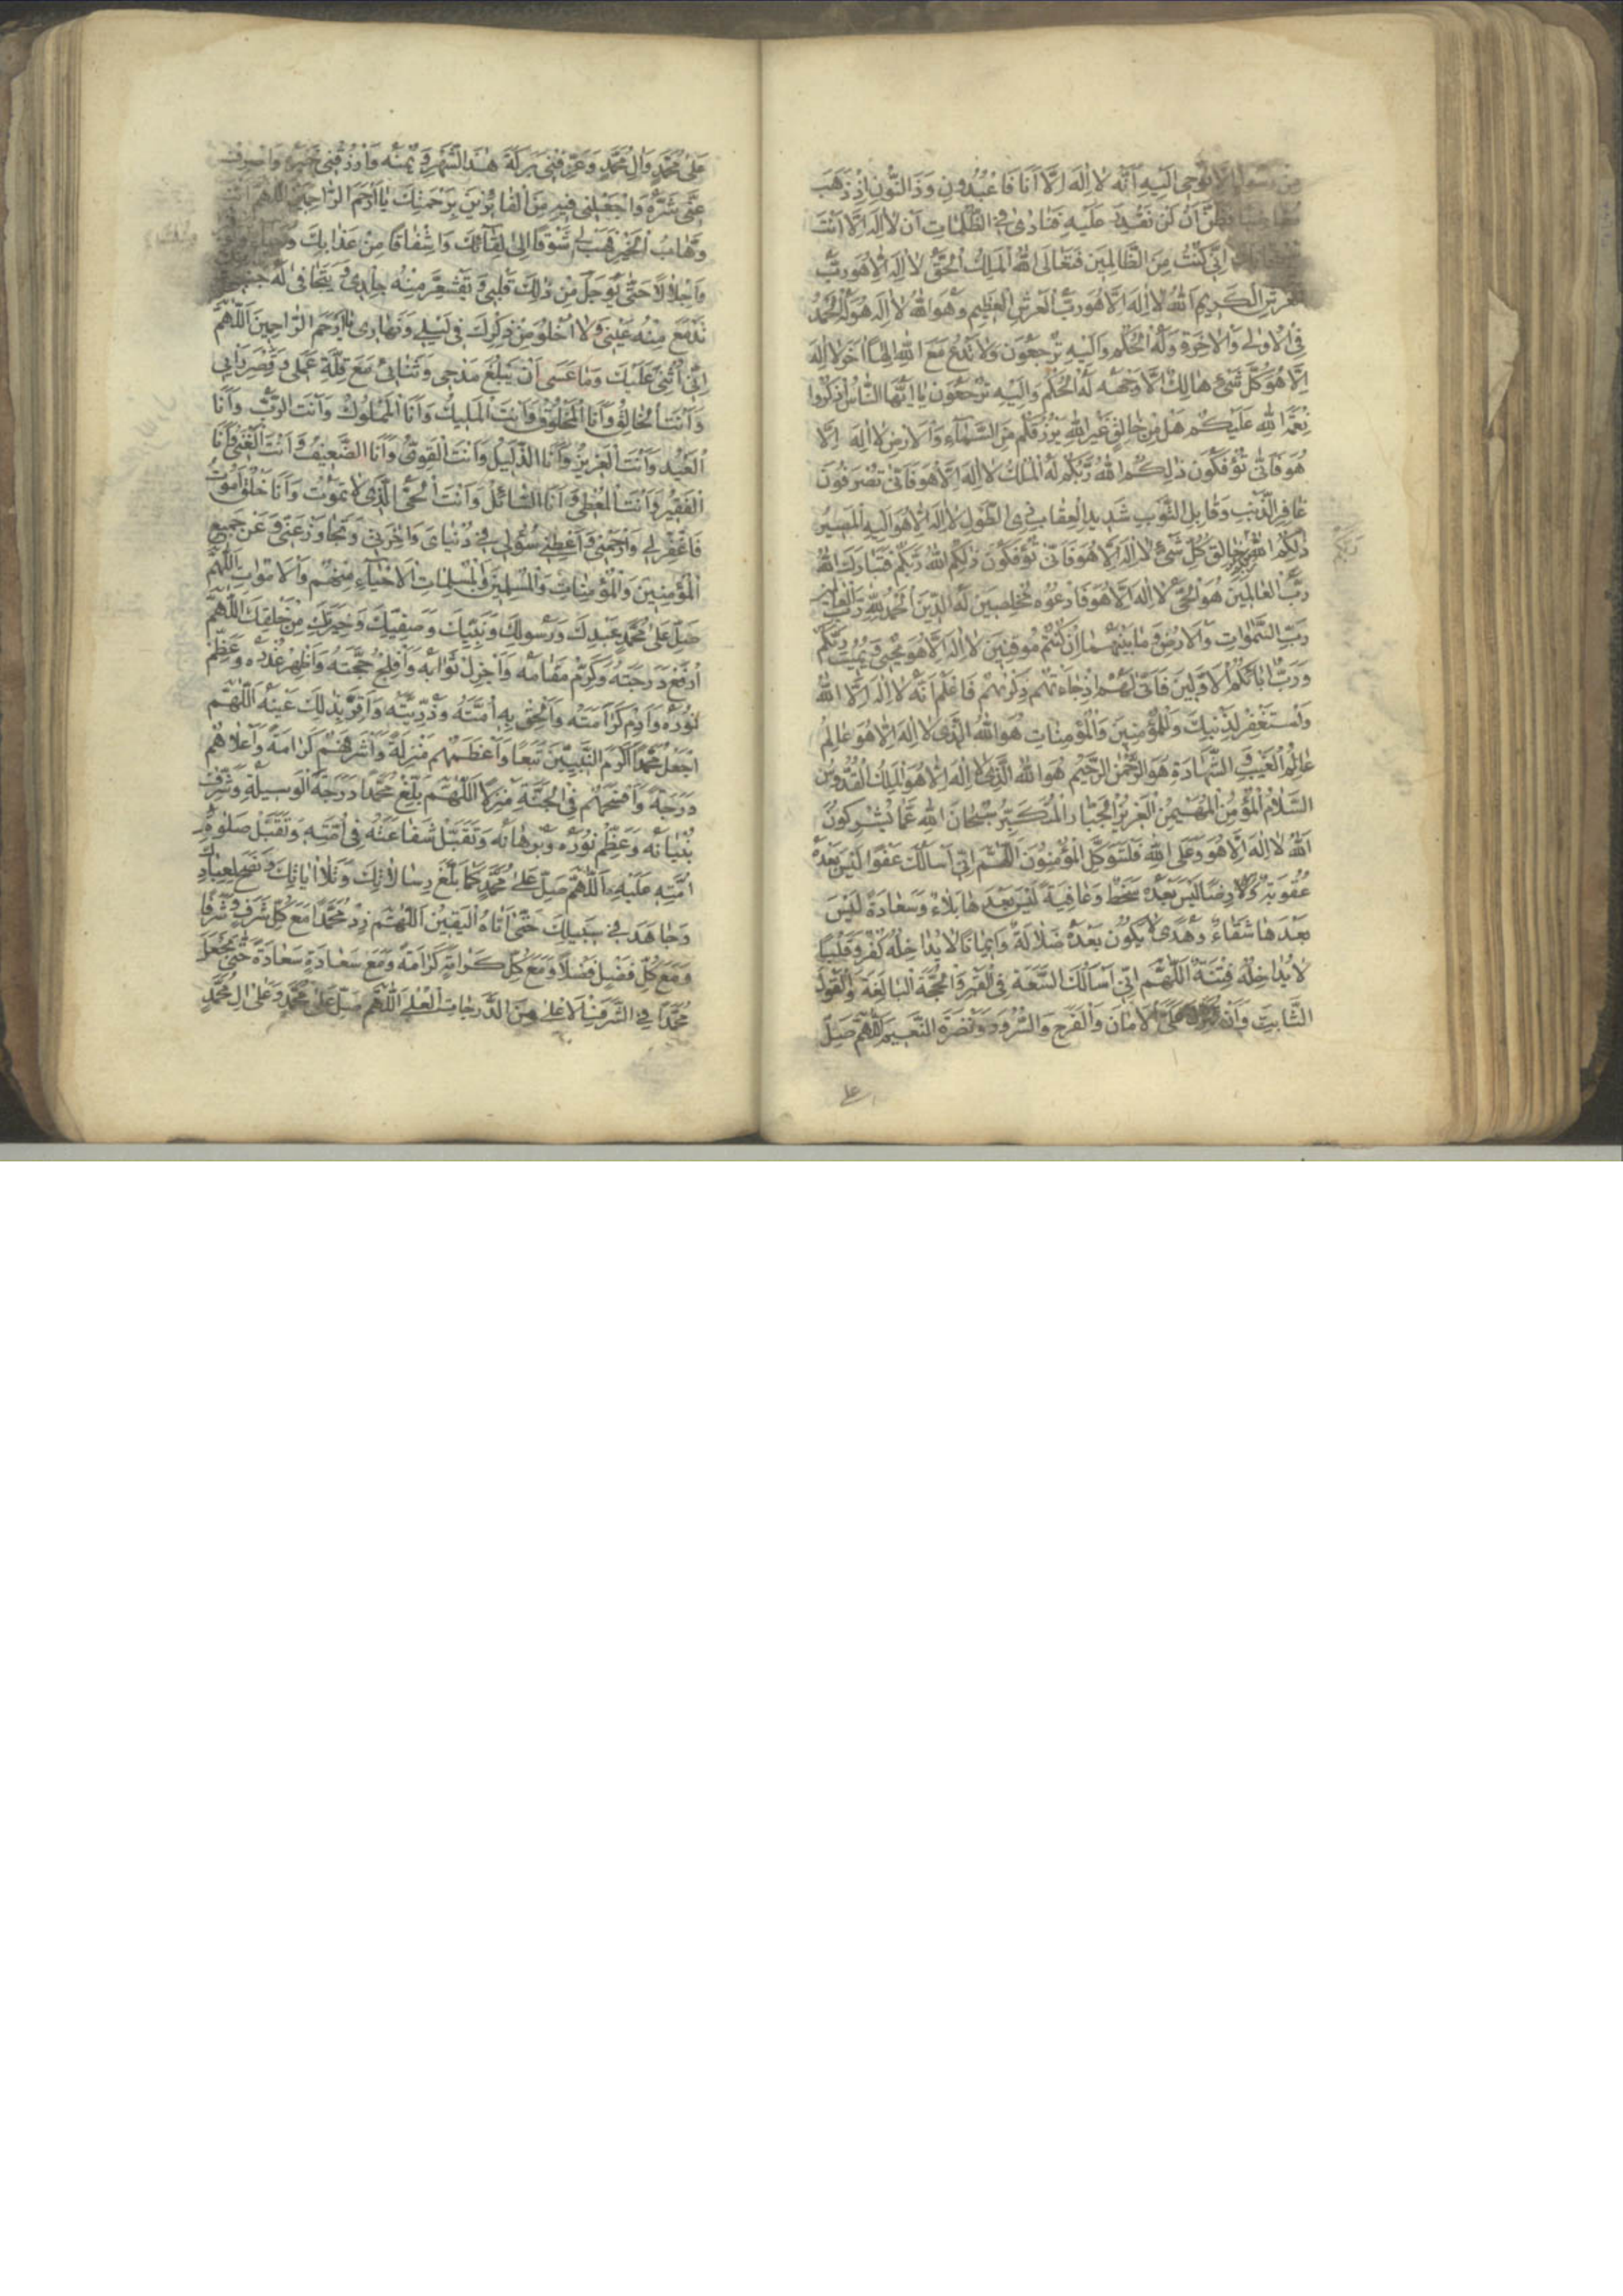 من رسول الا نوحى اليه انه لا اله الا انا فاعبدون وذا النون اذ ذهب
مغاضبا فظن ان لن نقدر عليه فنادى في الظلمات ان لا اله الا انت
انى كنت من الظالمين فتعالى الله الملك الحق لا اله الا هو رب
العرش الكريم الله لا اله الا هو رب العرش العظيم وهو الله لا اله هو له الحمد
فى الاولى والاخرة وله الحكم واليه ترجعون ولا تدع مع الله الها اخر لا اله
الا هو كل شىء هالك الا وجهه له الحكم واليه ترجعون يا ايها الناس اذكروا
نعمة الله عليكم هل من خالق غير الله يرزقكم من السماء والارض لا اله الا
هو فانى تؤفكون ذلكم الله ربكم له الملك لا اله الا هو فانى تصرفون
غافر الذنب وقابل التوب شديد العقاب ذى الطول لا اله الا هو اليه المصير
ذلكم الله خالق كل شىء لا اله الا هو فانى تؤفكون ذلكم الله ربكم فتبارك الله
رب العالمين هو الحى لا اله الا هو فادعوه مخلصين له الدين الحمد لله رب العالمين
رب السموات والارض وما بينهما ان كنتم موقنين لا اله الا هو يحيى ويميت ربكم
ورب ابائكم الاولين فانى لهم اذا جاءتهم ذكريهم فاعلم انه لا اله الا الله
واستغفر لذنبك وللمؤمنين والمؤمنات هو الله الذى لا اله الا هو عالم
عالم الغيب والشهادة هو الرحمن الرحيم هو الله الذى لا اله الا هو الملك القدوس
السلام المؤمن المهيمن العزيز الجبار المتكبر سبحان الله عما يشركون
الله لا اله الا هو وعلى الله فليتوكل المؤمنون اللهم انى اسالك عفوا ليس بعده
عقوبة ورضا ليس بعده سخط وعافية ليس بعدها بلاء وسعادة ليس
بعدها شقاء وهدى لا يكون بعده ضلالة وايمانا لا يداخله كفر وقلبا
لا يداخله فتنة اللهم انى اسالك السعة فى القبر والحجة البالغة والقول
الثابت وان تنزل على الامان والفرح والسرور ونضرة النعيم اللهم صل
على
على محمد وال محمد وعرفنى بركة هذا الشهر ويمنه وارزقنى خيره واصرف
عنى شره واجعلنى فيه من الفائزين برحمتك يا ارحم الراحمين اللهم انت
وهاب الخير هب لى شوقا الى لقائك واشفاقا من عذابك وحياء
واجلالا حتى يوجل من ذلك قلبى وتقشعر منه جلدى ويتجافى له جنبى
تدمع منه عينى ولا اخلو من ذكرك فى ليلى ونهارى يا ارحم الراحمين اللهم
انى اثنى عليك وما عسى ان يبلغ مدحى وثنائى مع قلة عملى وقصر رايى
وانت الخالق وانا المخلوق وانت المليك وانا المملوك وانت الرب وانا
العبد وانت العزيز وانا الذليل وانت القوى وانا الضعيف وانت الغنى وانا
الفقير وانت المعطى وانا السائل وانت الحى الذى لا يموت وانا خلق اموت
فاغفر لى وارحمنى واعطنى سؤلى فى دنياى واخرتى وتجاوز عنى وعن جميع
المؤمنين والمؤمنات والمسلمين والمسلمات الاحياء منهم والاموات اللهم
صل على محمد عبدك ورسولك ونبيك وصفيك وخيرتك من خلقك اللهم
ارفع درجته وكرم مقامه واجزل ثوابه وافلج حجته واظهر عذره وعظم
نوره وادم كرامته والحق به امته وذريته واقر بذلك عينه اللهم
اجعل محمدا اكرم النبيين تبعا واعظمهم منزلة واشرفهم كرامة واعلاهم
درجة وافسحهم فى الجنة منزلا اللهم بلغ محمدا درجة الوسيلة وشرف
بنيانه وعظم نوره وبرهانه وتقبل شفاعته فى امته وتقبل صلوة
امته عليه اللهم صل على محمد كما بلغ رسالاتك وتلا اياتك ونصح لعبادك
وجاهد فى سبيلك حتى اتاه اليقين اللهم زد محمدا مع كل شرف شرفا
ومع كل فضل فضلا ومع كل كرامة كرامة ومع سعادة سعادة حتى تجعل
محمدا فى الشرف الاعلى ومن الدرجات العلى اللهم صل على محمد وعلى ال محمد